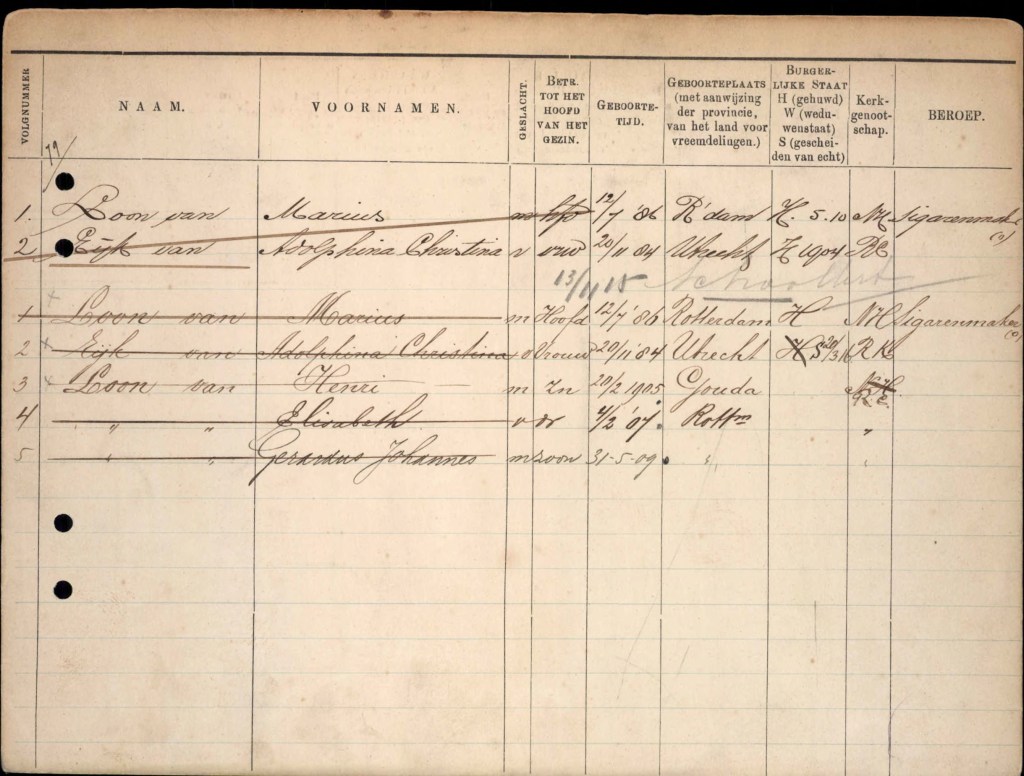 VOLGNUMMER NAAM. VOORNAMEN. GESLACHT. BETR. TOT HET HOOFD VAN HET GEZIN. GEBOORTE-TIJD. GEBOORTEPLAATS (met aanwijzing der provincie, van het land voor vreemdelingen.) BURGER-LIJKE STAAT H (gehuwd) W (wedu-wenstaat) S (geschei-den van echt) Kerk-genoot-schap. BEROEP.
79/
1. Loon van Marius m hfd 12/7 '86 R'dam H. 5.10 NH Sigarenmaker (o)
2 Eijk van Adolphina Christina v vrw 20/11 84 Utrecht H 1904 RK
13/11 15
1 Loon van Marius m Hoofd 12/7 '86 Rotterdam H NH Sigarenmaker (o)
2 Eijk van Adolphina Christina v Vrouw 20/11 '84 Utrecht H S 20/3 RK
3 Loon van Henri m Zn 20/2 1905 Gouda N.H. R.K.
4 " " Elisabeth v dr 4/2 '07. Rottm "
5 " " Gerardus Johannes m zoon 31-5-09. " "